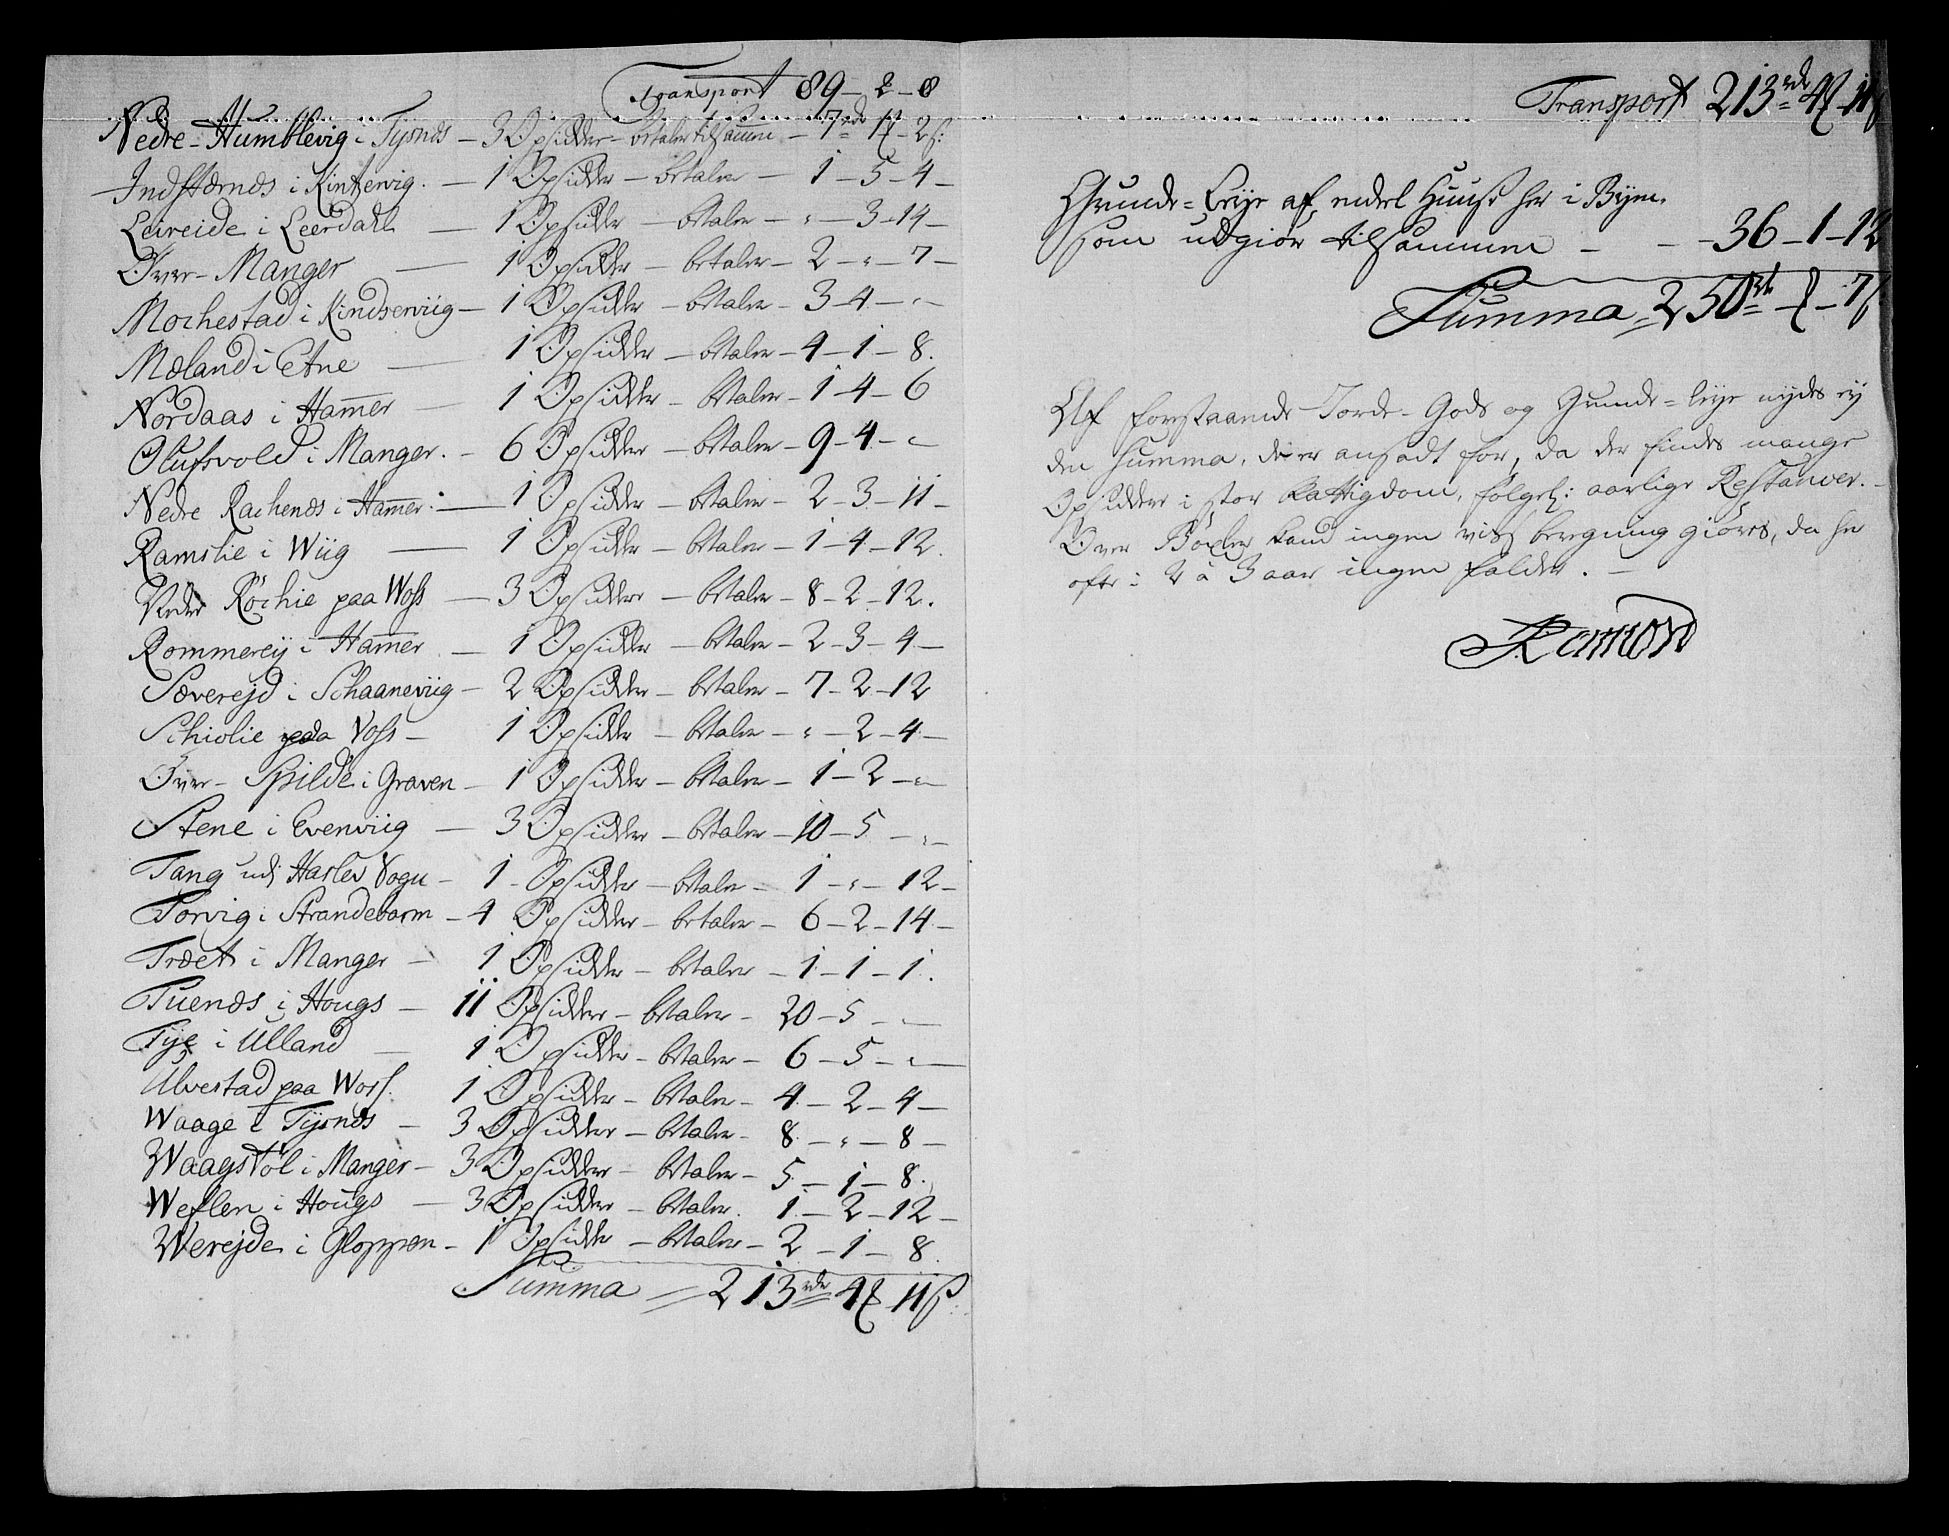 Transport 89 – 2 – 8
Nedre-Humblevig i Tysnes – 3 Opsidder – betaler tilsamme – 7 rdr 1 – 2 s:
Indstærnes i Kintzervig. – 1 Opsidder – betaler – 1 – 5 – 4 –
Leireide i Leerdahl – 1 Opsidder – betaler – " – 3 – 14 –
Over-Manger – 1 Opsidder – betaler – 2 – " – 7 –
Mochestad i Kindserviig – 1 Opsidder – betaler – 3 – 4 – " –
Mæland i Etne – 1 Opsidder – betaler – 4 – 1 – 8.
Nordaas i Hamer – 1 Opsidder – betaler – 1 – 4 – 6
Olufsvold i Manger. – 6 Opsidder – betaler – 9 – 4 – "
Nedre Rachenes i Hamer. – 1 Opsidder – betaler – 2 – 3 – 11 –
Ramslie i Wiig – 1 Opsidder – betaler – 1 – 4 – 12.
Nedre Röchie paa Woss – 3 Opsidder – betaler – 8 – 2 – 12.
Rommereij i Hamer – 1 Opsidder – betaler – 2 – 3 – 4 –
Sæverejd i Schaaneviig – 2 Opsidder – betaler – 7 – 2 – 12
Schiolie paa Voss – 1 Opsidder – betaler – " – 2 – 4 –
Over-Spilde i Graven – 1 Opsidder – betaler – 1 – 2 – "
Stene i Evenviig – 3 Opsidder – betaler – 10 – 5 – "
Tang udj Hasler Sogn – 1 Opsidder – betaler – 1 – " – 12 –
Torvig i Strandebarm – 4 Opsidder – betaler – 6 – 2 – 14 –
Træet i Manger – 1 Opsidder – betaler – 1 – 1 – 1.
Tuenes i Hougs – 11 Opsidder – betaler – 20 – 5 – "
Tye i Ulland – 1 Opsidder – betaler – 6 – 5 – "
Ulvestad paa Woss. 1 Opsidder – betaler – 4 – 2 – 4 –
Waage i Tysnes – 3 Opsidder – betaler – 8 – " – 8 –
Waagstöl i Manger – 3 Opsidder – betaler – 5 – 1 – 8.
Weflen i Hougs – 3 Opsidder – betaler. 1 – 2 – 12 –
Werejde i Gloppen – 1 Opsidder – betaler – 2 – 1 – 8.
Summa = 213 rdr 4 – 11 s:
Transport 213 rdr 4 – 11 s
Grunde-Leije af endeel Huuse her i Byen,
som udgiør tilsammen – – 36 – 1 – 12
Summa = 250 rd – " – 7 s
Af forestaaende Jorde-Gods og Grunde-leije nydes ej
den Summa, de er ansadt for, da der findes mange
Opsiddere i stor Fattigdom, følgel: aarlige Restancer. –
Over Böxler kand ingen viss beregning giöres, da her
ofte i 2 a 3 aar ingen falder. –